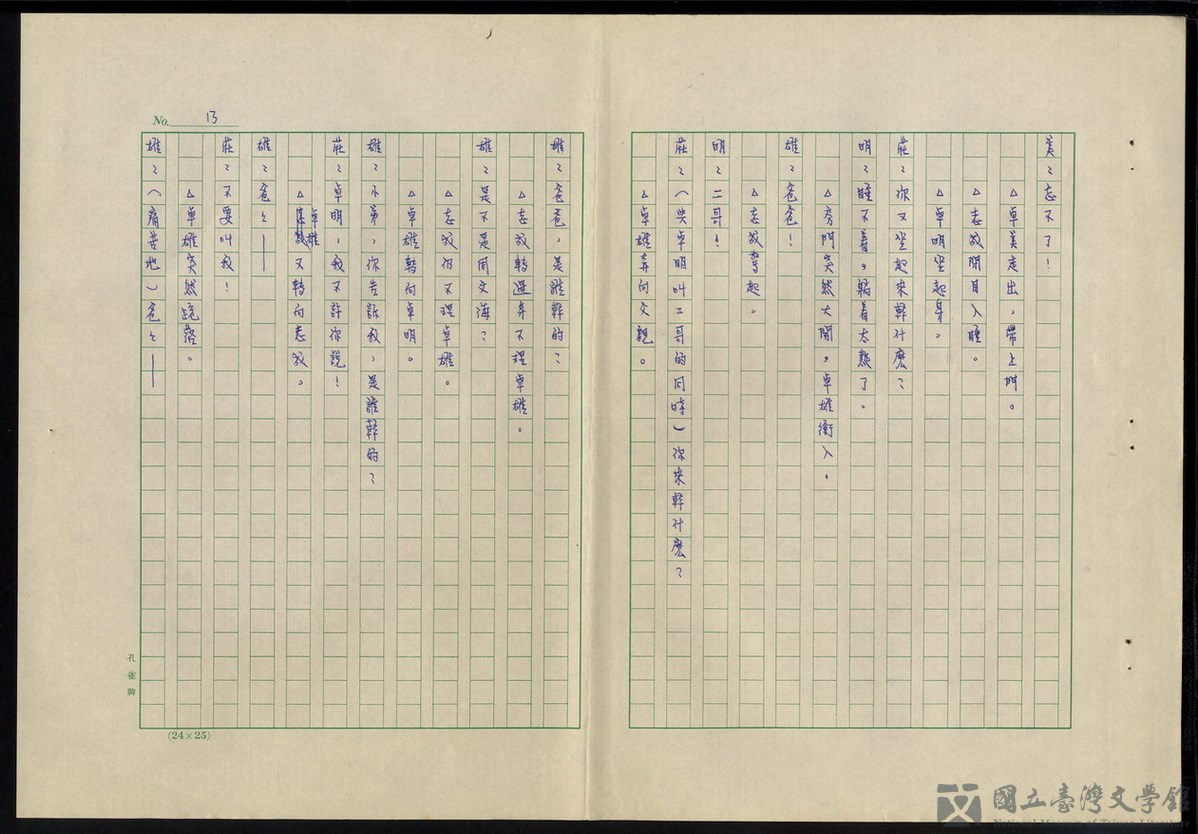 No. 13
美：忘不了！
△卓美走出，帶上門。
△志毅閉目入睡。
△卓明坐起身。
莊：你又坐起來幹什麼？
明：睡不着。躺着太熱了。
△旁門突然大開，卓雄衝入。
雄：爸爸！
△志毅驚起。
明：二哥！
莊：（與卓明叫二哥的同時）你來幹什麼？
△卓雄奔向父親。
雄：爸爸，是誰幹的？
△志毅轉過身不理卓雄。
雄：是不是周文海？
△志毅仍不理卓雄。
△卓雄轉向卓明。
雄：小弟，你告訴我，是誰幹的？
莊：卓明，我不許你說！
△卓雄又轉向志毅。
雄：爸爸——
莊：不要叫我！
△卓雄突然跪落。
雄：（痛苦地）爸爸——
孔雀牌
(24×25)
國立臺灣文學館
National Museum of Taiwan Literature